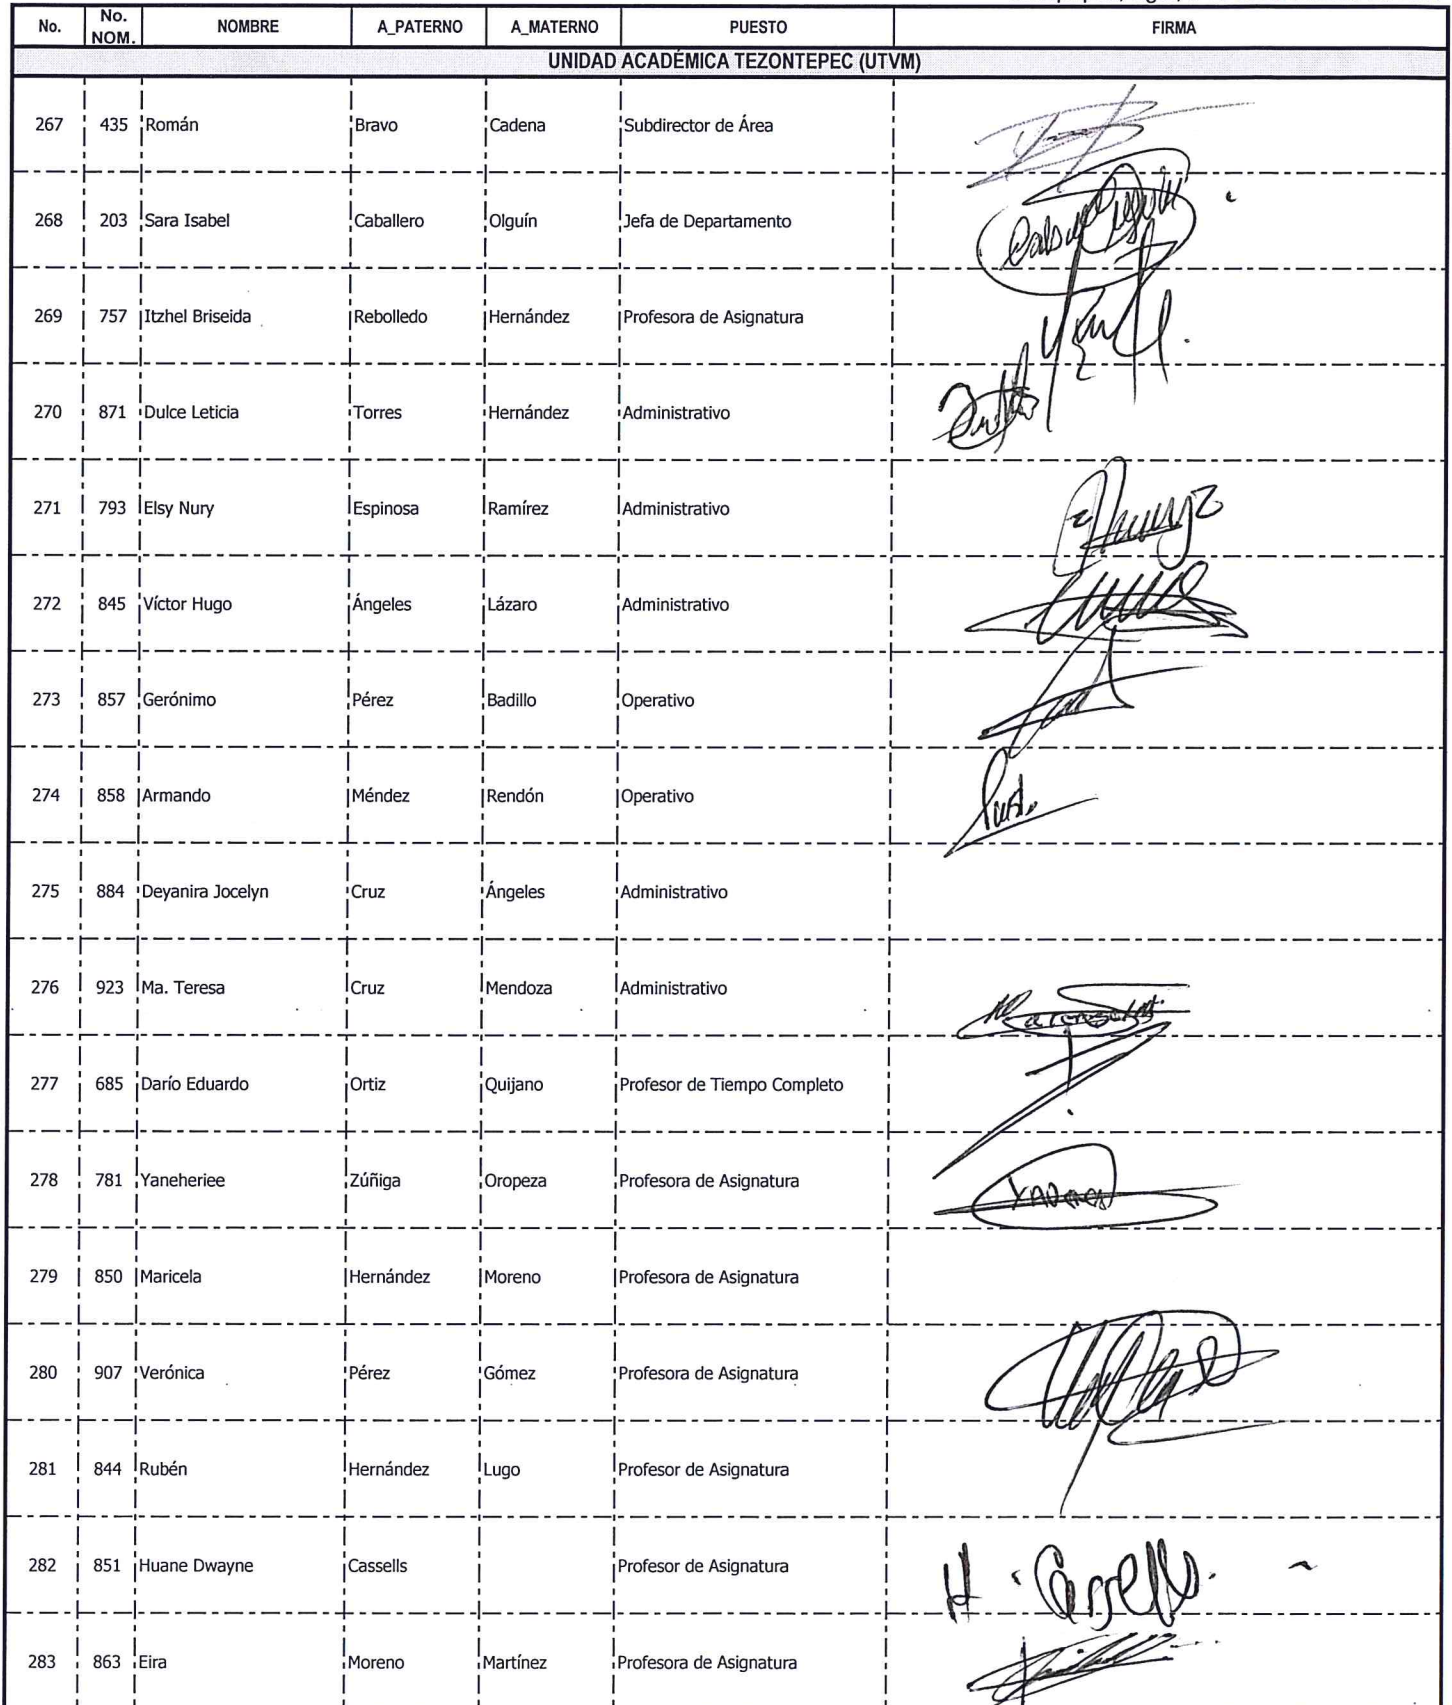 No. No. NOM. NOMBRE A_PATERNO A_MATERNO PUESTO FIRMA
UNIDAD ACADÉMICA TEZONTEPEC (UTVM)
267 435 Román Bravo Cadena Subdirector de Área
268 203 Sara Isabel Caballero Olguín Jefa de Departamento
269 757 Itzhel Briseida Rebolledo Hernández Profesora de Asignatura
270 871 Dulce Leticia Torres Hernández Administrativo
271 793 Elsy Nury Espinosa Ramírez Administrativo
272 845 Víctor Hugo Ángeles Lázaro Administrativo
273 857 Gerónimo Pérez Badillo Operativo
274 858 Armando Méndez Rendón Operativo
275 884 Deyanira Jocelyn Cruz Ángeles Administrativo
276 923 Ma. Teresa Cruz Mendoza Administrativo
277 685 Darío Eduardo Ortiz Quijano Profesor de Tiempo Completo
278 781 Yaneheriee Zúñiga Oropeza Profesora de Asignatura
279 850 Maricela Hernández Moreno Profesora de Asignatura
280 907 Verónica Pérez Gómez Profesora de Asignatura
281 844 Rubén Hernández Lugo Profesor de Asignatura
282 851 Huane Dwayne Cassells Profesor de Asignatura H. Cassells.
283 863 Eira Moreno Martínez Profesora de Asignatura